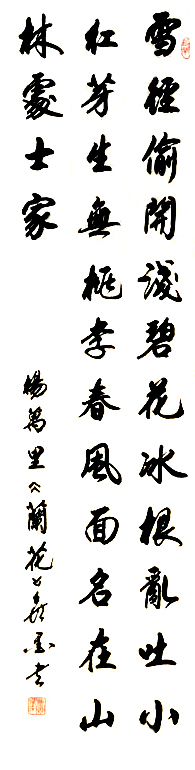 雪徑偷開淺碧花冰根亂吐小
紅芽生無桃李春風面名在山
林處士家
楊萬里〈蘭花〉